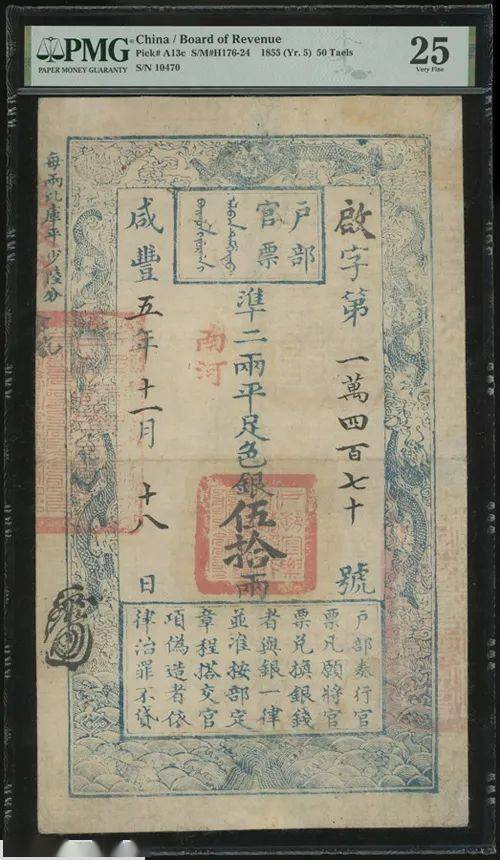 PMG
PAPER MONEY GUARANTY
China / Board of Revenue
Pick# A13c S/M#H176-24 1855 (Yr. 5) 50 Taels
S/N 10470
25
Very Fine
戶部
官票
啟字第一萬四百七十號
準二兩平足色銀伍拾兩
南河
咸豐五年十一月十八日
每兩比庫平少陸分
戶部奏行官
票凡願將官
票兌換銀錢
者與銀一律
並准按部定
章程搭交官
項偽造者依
律治罪不貸